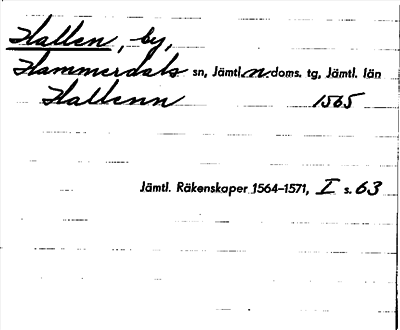 Hallen, by,
Hammerdals sn, Jämtl. n. doms. tg, Jämtl. län
Hallenn 1565
Jämtl. Räkenskaper 1564–1571, I s. 63